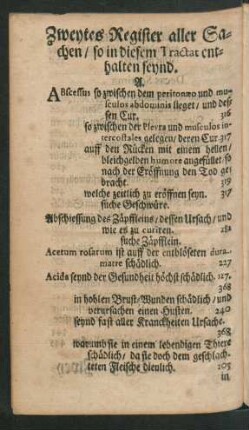 Zweytes Register aller Sa-
chen / so in diesem Tractat ent-
halten seynd.
A.
ABscessus so zwischen dem peritonæo und mu-
sculos abdominis lieget / und des-
sen Cur. 316
so zwischen der Plevra und musculos in-
tercostales gelegen / deren Cur. 317
auff den Rücken mit einem hellen /
bleichgelben humore angefüllet / so
nach der Eröffnung den Tod ge-
bracht. 319
welche zeitlich zu eröffnen seyn. 317
suche Geschwüre.
Abschiessung des Zäpffleins / dessen Ursach / und
wie es zu curiren. 281
suche Zäpfflein.
Acetum rosarum ist auff der entblöseten dura
matre schädlich. 227
Acida seynd der Gesundheit höchst schädlich. 127.
368
in hohlen Brust / Wunden schädlich / und
verursachen einen Husten. 240
seynd fast aller Kranckheiten Ursache.
368
warumb sie in einem lebendigen Thiere
schädlich / da sie doch dem geschlach-
teten Fleische dienlich. 205
in